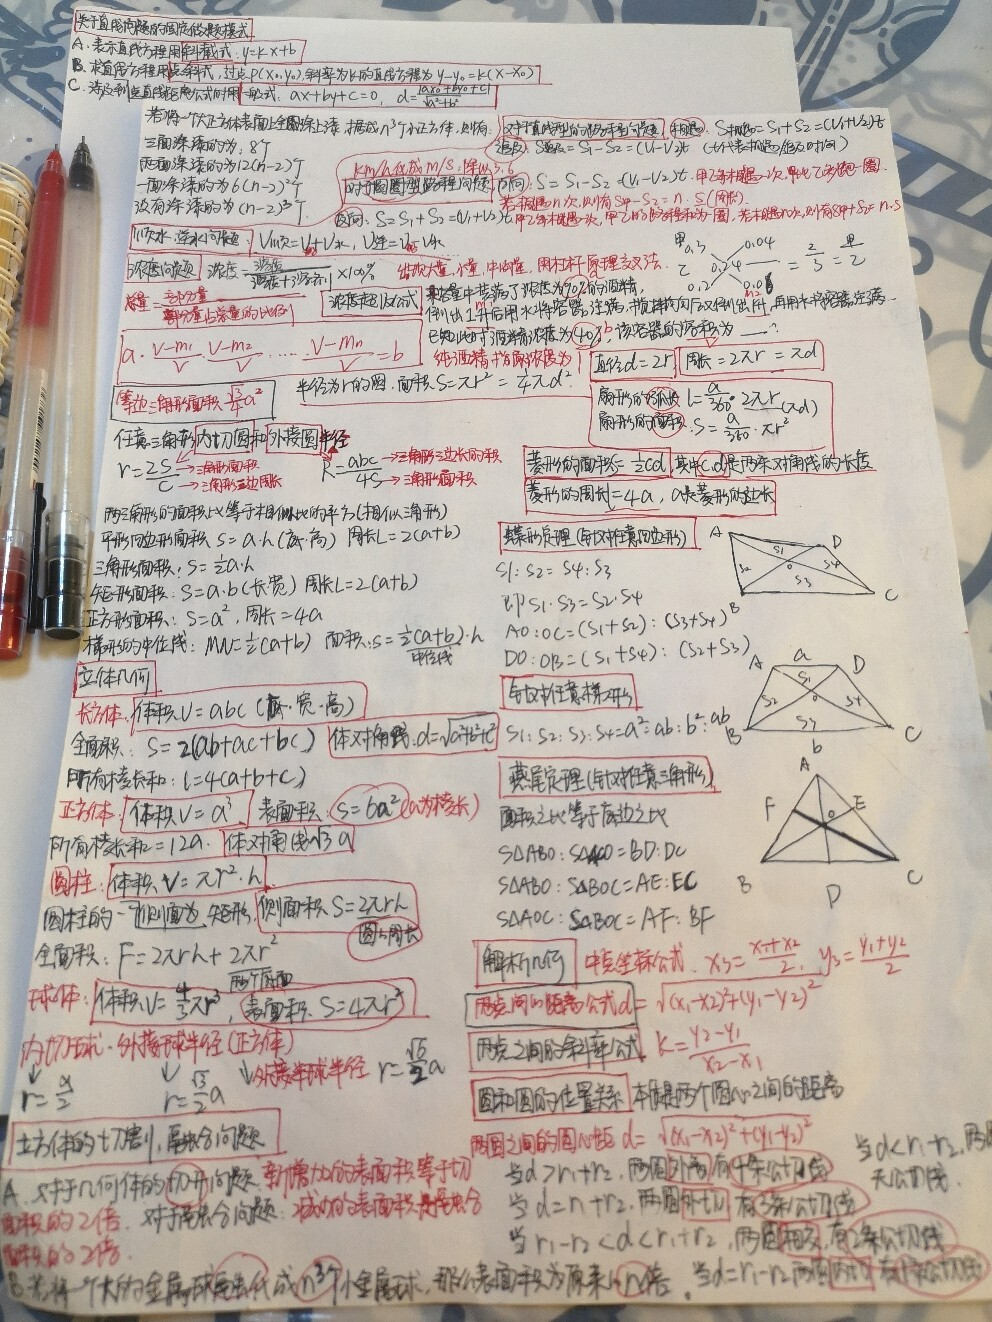 关于直线问题的固定做题模式
A. 表示直线方程用斜截式, y=kx+b
B. 求直线方程用点斜式, 过点P(x₀,y₀), 斜率为k的直线方程为 y-y₀=k(x-x₀)
C. 涉及到点直线距离公式时用一般式: ax+by+c=0, d=|ax₀+by₀+c|/√a²+b²
若将一个大正方体表面上全部涂上漆, 据成n³个小正方体, 则有:
三面涂漆的为: 8个
两面涂漆的为12(n-2)个
一面涂漆的为6(n-2)²个
没有涂漆的为(n-2)³个
对于直线型的路程问题 相遇: S相遇=S₁+S₂=(V₁+V₂)t
追及: S追及=S₁-S₂=(V₁-V₂)t (t代表相遇/追及时间)
km/h化成m/s, 除以3.6
对于圆圈型路程问题 同向: S=S₁-S₂=(V₁-V₂)t. 甲乙每相遇一次, 甲比乙多跑一圈.
若相遇n次, 则有S甲-S乙=n·S(周长)
反向: S=S₁+S₂=(V₁+V₂)t
甲乙每相遇一次, 甲乙的路程和为一圈, 若相遇n次, 则有S甲+S乙=n·S
顺水, 逆水问题: V顺=V船+V水, V逆=V船-V水
浓度问题 浓度=溶质/溶液(溶质+溶剂)×100%
出现大量, 小量, 中间量, 用杠杆原理交叉法.
甲 0.3
乙 0.2
0.24
0.04
=2/3=甲/乙
总量=部分量/部分量占总量的比例
浓度起别公式
某容量中装满了浓度为90%的酒精,
倒出1升后用水将容器注满, 搅拌均匀后又倒出1升, 再用水将容器注满.
已知此时酒精浓度为40%, 该容器的容积为___?
a·V-m₁/V·V-m₂/V……V-mₙ/V=b
直径d=2r 周长=2πr=πd
等边三角形面积 √3/4a²
半径为r的圆, 面积S=πr²=1/4πd²
扇形的弧长 l=a/360·2πr (πd)
扇形的面积: S=a/360·πr²
任意三角形内切圆和外接圆半径
r=2S/C →三角形面积 →三角形三边周长
R=abc/4S →三角形三边长的积 →三角形面积
菱形的面积S=½cd, 其中c,d是两条对角线的长度
菱形的周长=4a, a是菱形的边长
两三角形的面积比等于相似比的平方(相似三角形)
平行四边形面积 S=a·h(底·高) 周长L=2(a+b)
三角形面积: S=½a·h
矩形面积: S=a·b(长·宽) 周长L=2(a+b)
正方形面积: S=a², 周长=4a
梯形的中位线: MN=½(a+b) 面积:S=½(a+b)·h
中位线
蝶形定理(针对任意四边形)
S₁:S₂=S₄:S₃
即S₁·S₃=S₂·S₄
AO:OC=(S₁+S₂):(S₃+S₄)
DO:OB=(S₁+S₄):(S₂+S₃)
A D S₁ S₂ O S₄ S₃ B C
针对任意梯形
S₁:S₂:S₃:S₄=a²:ab:b²:ab
A a D S₁ S₂ O S₄ S₃ B b C
燕尾定理(针对任意三角形)
面积之比等于底边之比
S△ABO:S△ACO=BD:DC
S△ABO:S△BOC=AE:EC
S△AOC:S△BOC=AF:BF
A F E O B D C
立体几何
长方体: 体积V=abc (长·宽·高)
全面积: S=2(ab+ac+bc) 体对角线:d=√a²+b²+c²
所有棱长和: l=4(a+b+c)
正方体: 体积V=a³ 表面积: S=6a² (a为棱长)
所有棱长和=12a. 体对角线√3a
圆柱: 体积V=πr²·h
圆柱的一个侧面为矩形, 侧面积S=2πrh
圆的周长
全面积: F=2πrh+2πr²
两个底面
球体: 体积V=4/3πr³, 表面积 S=4πr²
内切球·外接球半径(正方体)
外接半球半径 r=√6/2a
r=a/2 r=√3/2a
解析几何 中点坐标公式. x₃=x₁+x₂/2, y₃=y₁+y₂/2
两点间的距离公式d=√(x₁-x₂)²+(y₁-y₂)²
两点之间的斜率公式 k=y₂-y₁/x₂-x₁
圆和圆的位置关系 本质是两个圆心之间的距离
两圆之间的圆心距 d=√(x₁-x₂)²+(y₁-y₂)²
当d>r₁+r₂, 两圆外离, 有4条公切线
当d=r₁+r₂, 两圆外切, 有3条公切线
当r₁-r₂<d<r₁+r₂, 两圆相交, 有2条公切线
当d=r₁-r₂ 两圆内切 有1条公切线
当d<r₁+r₂, 两圆
无公切线.
立方体的切割, 叠合问题
A. 对于几何体的切开问题, 新增加的表面积等于切
面积的2倍. 对于叠合问题: 减少的表面积是叠合
面积的2倍.
B. 若将一个大的金属球熔化成n³个小金属球, 那么表面积为原来的n倍.